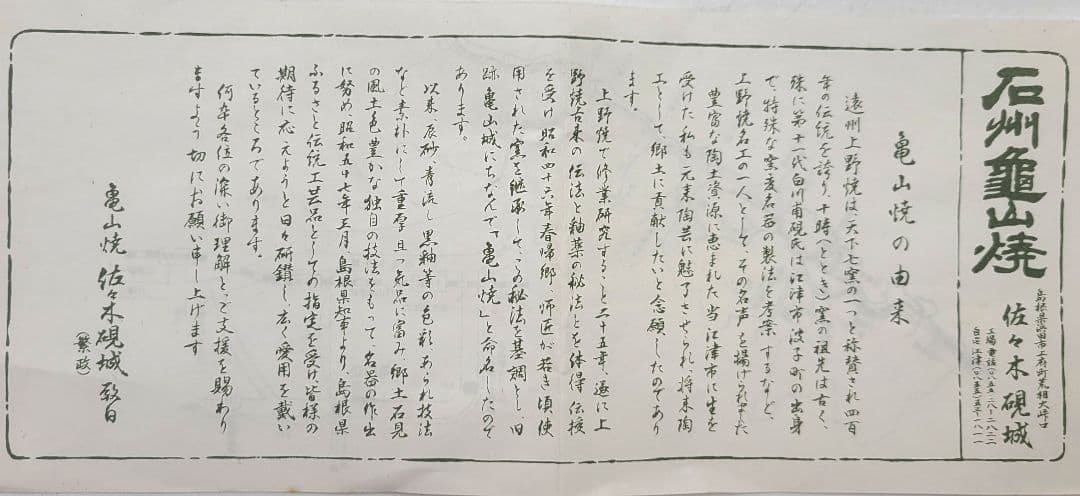 石州龜山焼
佐々木硯城
島根県浜田市上府町荒相大峠口
工場 電話(〇八五五)二八-二八二二
自宅 江津(〇八五五五)五三-一八一一
亀山焼の由来
遠州上野焼は、天下七窯の一つと称賛され四百
年の伝統を誇り、十時(ととき)窯の祖先は古く、
殊に第十一代白川甫硯氏は江津市波子町の出身
で、特殊な窯変名器の製法を考案するなど、
上野焼名工の一人として、その名声を揚げられました
豊富な陶土資源に恵まれた当江津市に生を
受けた私も元来陶芸に魅了させられ、将来陶
工として、郷土に貢献したいと念願したのであり
ます。
上野焼で修業研究すること二十五年、遂に上
野焼古来の伝法と釉薬の秘法とを体得、伝授
を受け昭和四十六年春帰郷、師匠が若き頃使
用された窯を継承して、この秘法を基調とし、旧
跡亀山城にちなんで「亀山焼」と命名したので
あります。
以来、辰砂、青流し、黒釉等の色彩、あられ技法
など素朴にして重厚且つ気品に富み、郷土石見
の風土色豊かな独自の技法をもって、名器の作出
に努め昭和五十七年三月島根県知事より、島根県
ふるさと伝統工芸品としての指定を受け、皆様の
期待に応えようと日々研鑽し、広く愛用を戴い
ているところであります。
何卒各位の深い御理解と、ご支援を賜わり
ますよう切にお願い申し上げます
亀山焼 佐々木硯城敬白
(繁政)